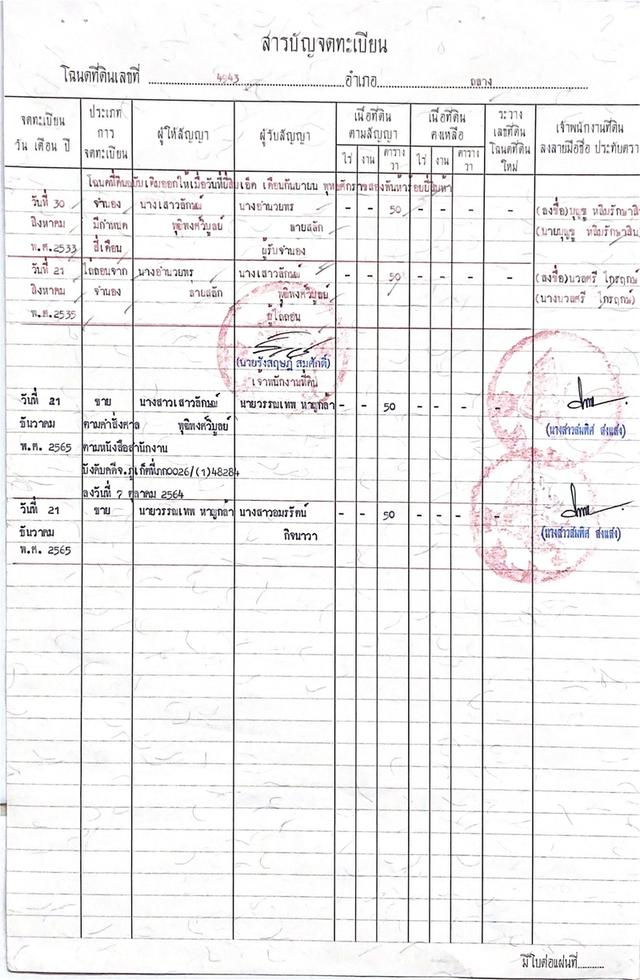 สารบัญจดทะเบียน
โฉนดที่ดินเลขที่ 4943 อำเภอ ถลาง
จดทะเบียน วัน เดือน ปี
ประเภท การ จดทะเบียน
ผู้ให้สัญญา
ผู้รับสัญญา
เนื้อที่ดิน ตามสัญญา
ไร่ งาน ตาราง วา
เนื้อที่ดิน คงเหลือ
ไร่ งาน ตาราง วา
ระวาง เลขที่ดิน โฉนดที่ดิน ใหม่
เจ้าพนักงานที่ดิน ลงลายมือชื่อ ประทับตรา
โฉนดที่ดินฉบับเดิมออกให้เมื่อวันที่ยี่สิบเอ็ด เดือนกันยายน พุทธศักราชสองพันห้าร้อยยี่สิบห้า
วันที่ 30 จำนอง นางเสาวลักษณ์ นางอำนวยพร - - 50 - - - - (ลงชื่อ) บุญชู
สิงหาคม มีกำหนด พุฒิพงศ์วิบูลย์ ลายสลัก (นายบุญชู
พ.ศ.2533 สี่เดือน ผู้รับจำนอง
วันที่ 21 ไถ่ถอนจาก นางอำนวยพร นางเสาวลักษณ์ - - 50 - - - - (ลงชื่อ) นวลศรี ไกรฤกษ์
สิงหาคม จำนอง ลายสลัก พุฒิพงศ์วิบูลย์ (นางนวลศรี ไกรฤกษ์)
พ.ศ.2535 ผู้ไถ่ถอน
(นายรังสฤษฎ์ สมศักดิ์)
เจ้าพนักงานที่ดิน
วันที่ 21 ขาย นางสาวเสาวลักษณ์ นายวรรณเทพ หาญกล้า - - 50 - - - -
ธันวาคม ตามคำสั่งศาล พุฒิพงศ์วิบูลย์ (นางสาวสมทิศ ส่งแสง)
พ.ศ. 2565 ตามหนังสือสำนักงาน
บังคับคดีจ.ภูเก็ตที่ภก0026/(1)48284
ลงวันที่ 7 ตุลาคม 2564
วันที่ 21 ขาย นายวรรณเทพ หาญกล้า นางสาวอมรรัตน์ - - 50 - - - -
ธันวาคม กิจนาวา (นางสาวสมทิศ ส่งแสง)
พ.ศ. 2565
มีใบต่อแผ่นที่